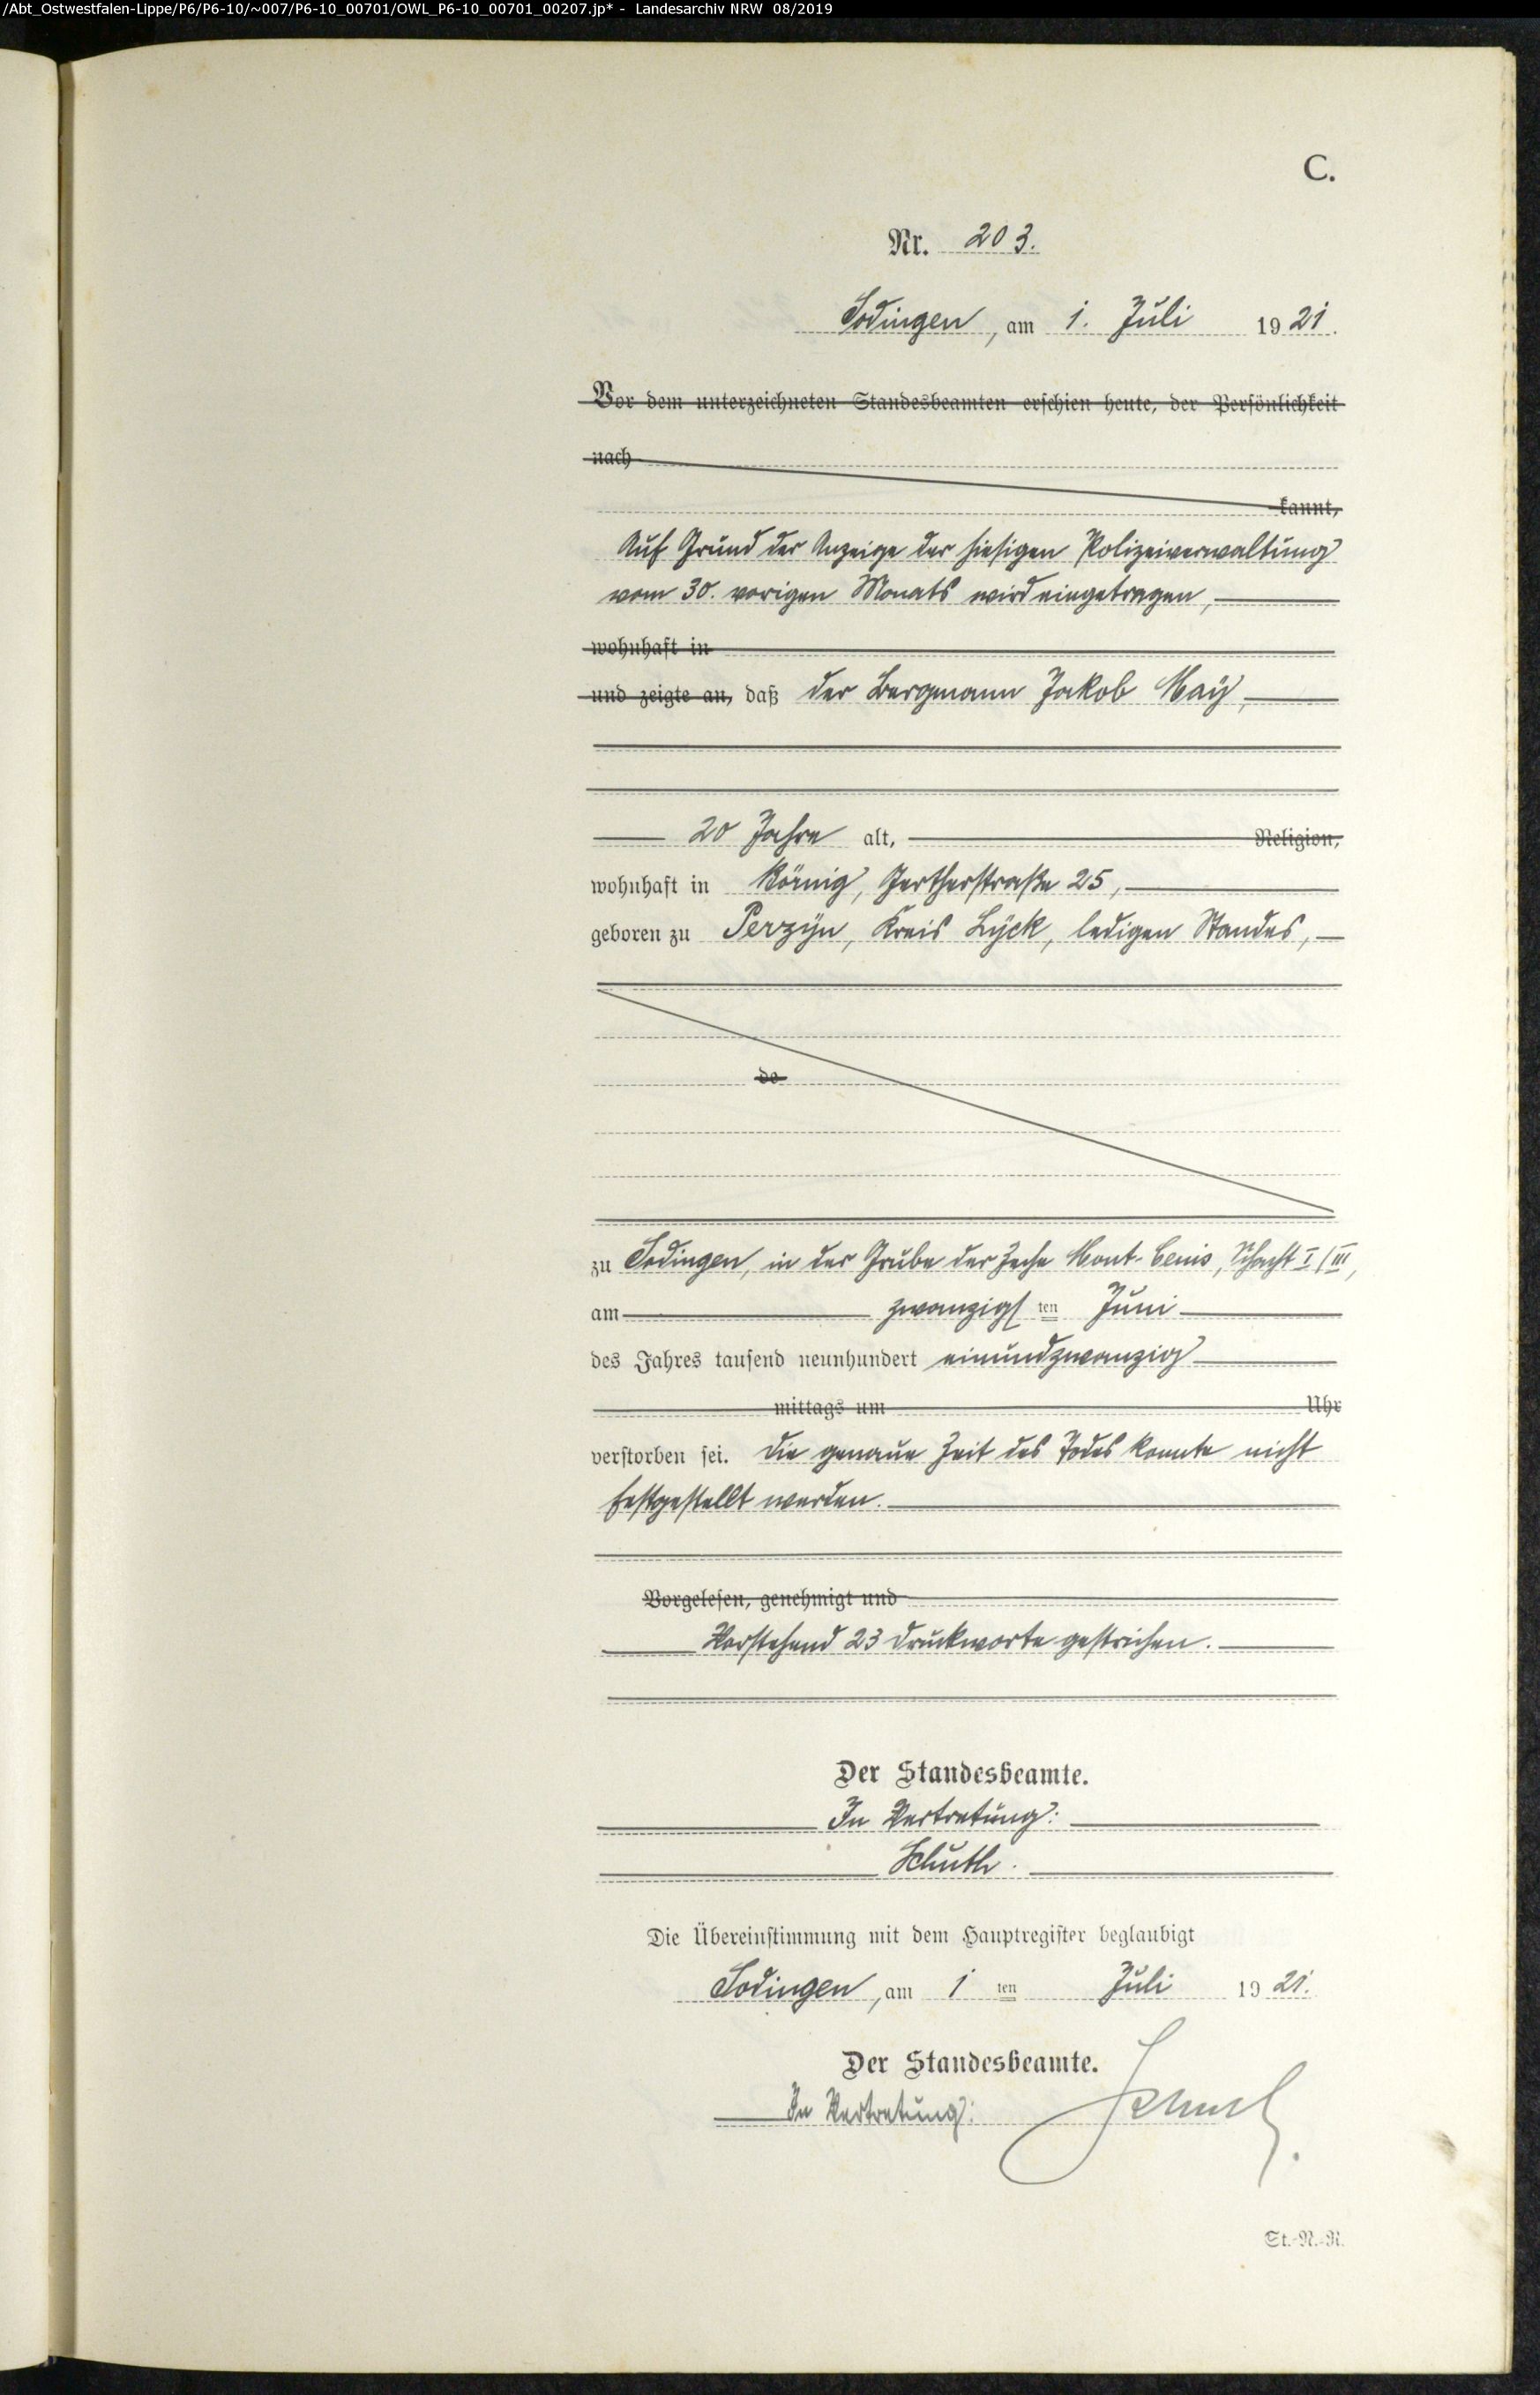 /Abt_Ostwestfalen-Lippe/P6/P6-10/~007/P6-10_00701/OWL_P6-10_00701_00207.jp* - Landesarchiv NRW 08/2019
C.
Nr. 203.
Sodingen, am 1. Juli 1921.
Vor dem unterzeichneten Standesbeamten erschien heute, der Persönlichkeit
nach
kannt,
Auf Grund der Anzeige der hiesigen Polizeiverwaltung
vom 30. vorigen Monats wird eingetragen,
wohnhaft in
und zeigte an, daß der Bergmann Jakob May,
20 Jahre alt, Religion,
wohnhaft in Börnig, Gertherstraße 25,
geboren zu Perzyn, Kreis Lyck, ledigen Standes,
de
zu Sodingen, in der Grube der Zeche Mont-Cenis, Schacht I/III,
am zwanzigsten Juni
des Jahres tausend neunhundert einundzwanzig
mittags um Uhr
verstorben sei. Die genaue Zeit des Todes konnte nicht
festgestellt werden.
Vorgelesen, genehmigt und
Vorstehend 23 Druckworte gestrichen.
Der Standesbeamte.
In Vertretung:
Schuth.
Die Übereinstimmung mit dem Hauptregister beglaubigt
Sodingen, am 1 ten Juli 1921.
Der Standesbeamte.
In Vertretung:
St.-N.-R.